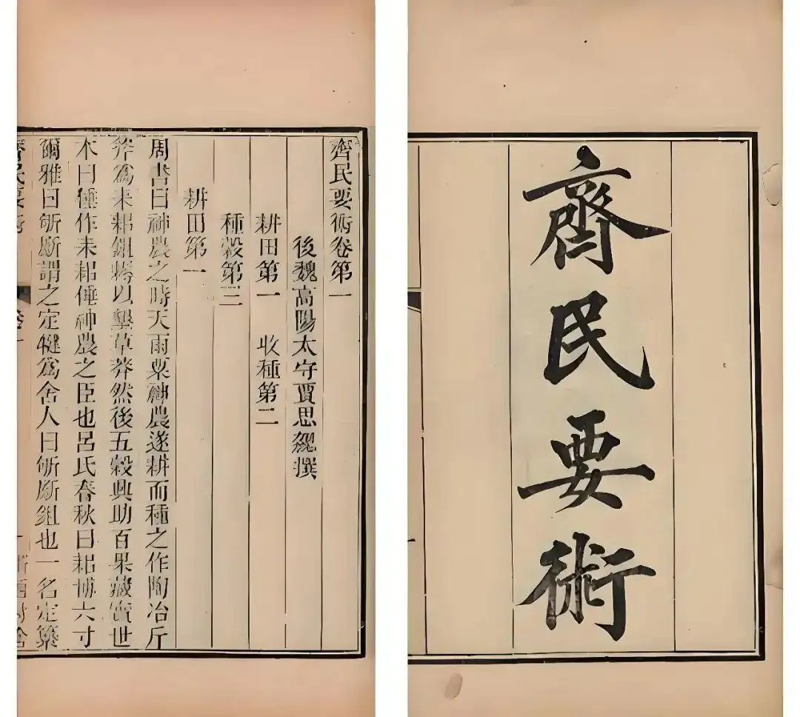 齊民要術
齊民要術卷第一
後魏高陽太守賈思勰撰
耕田第一　收種第二
種穀第三
耕田第一
周書曰神農之時天雨粟神農遂耕而種之作陶冶斤
斧爲耒耜鉏耨以墾草莽然後五穀興助百果藏實世
本曰倕作耒耜倕神農之臣也呂氏春秋曰耜博六寸
爾雅曰斪斸謂之定犍爲舍人曰斪斸鉏也一名定纂
齊民要術